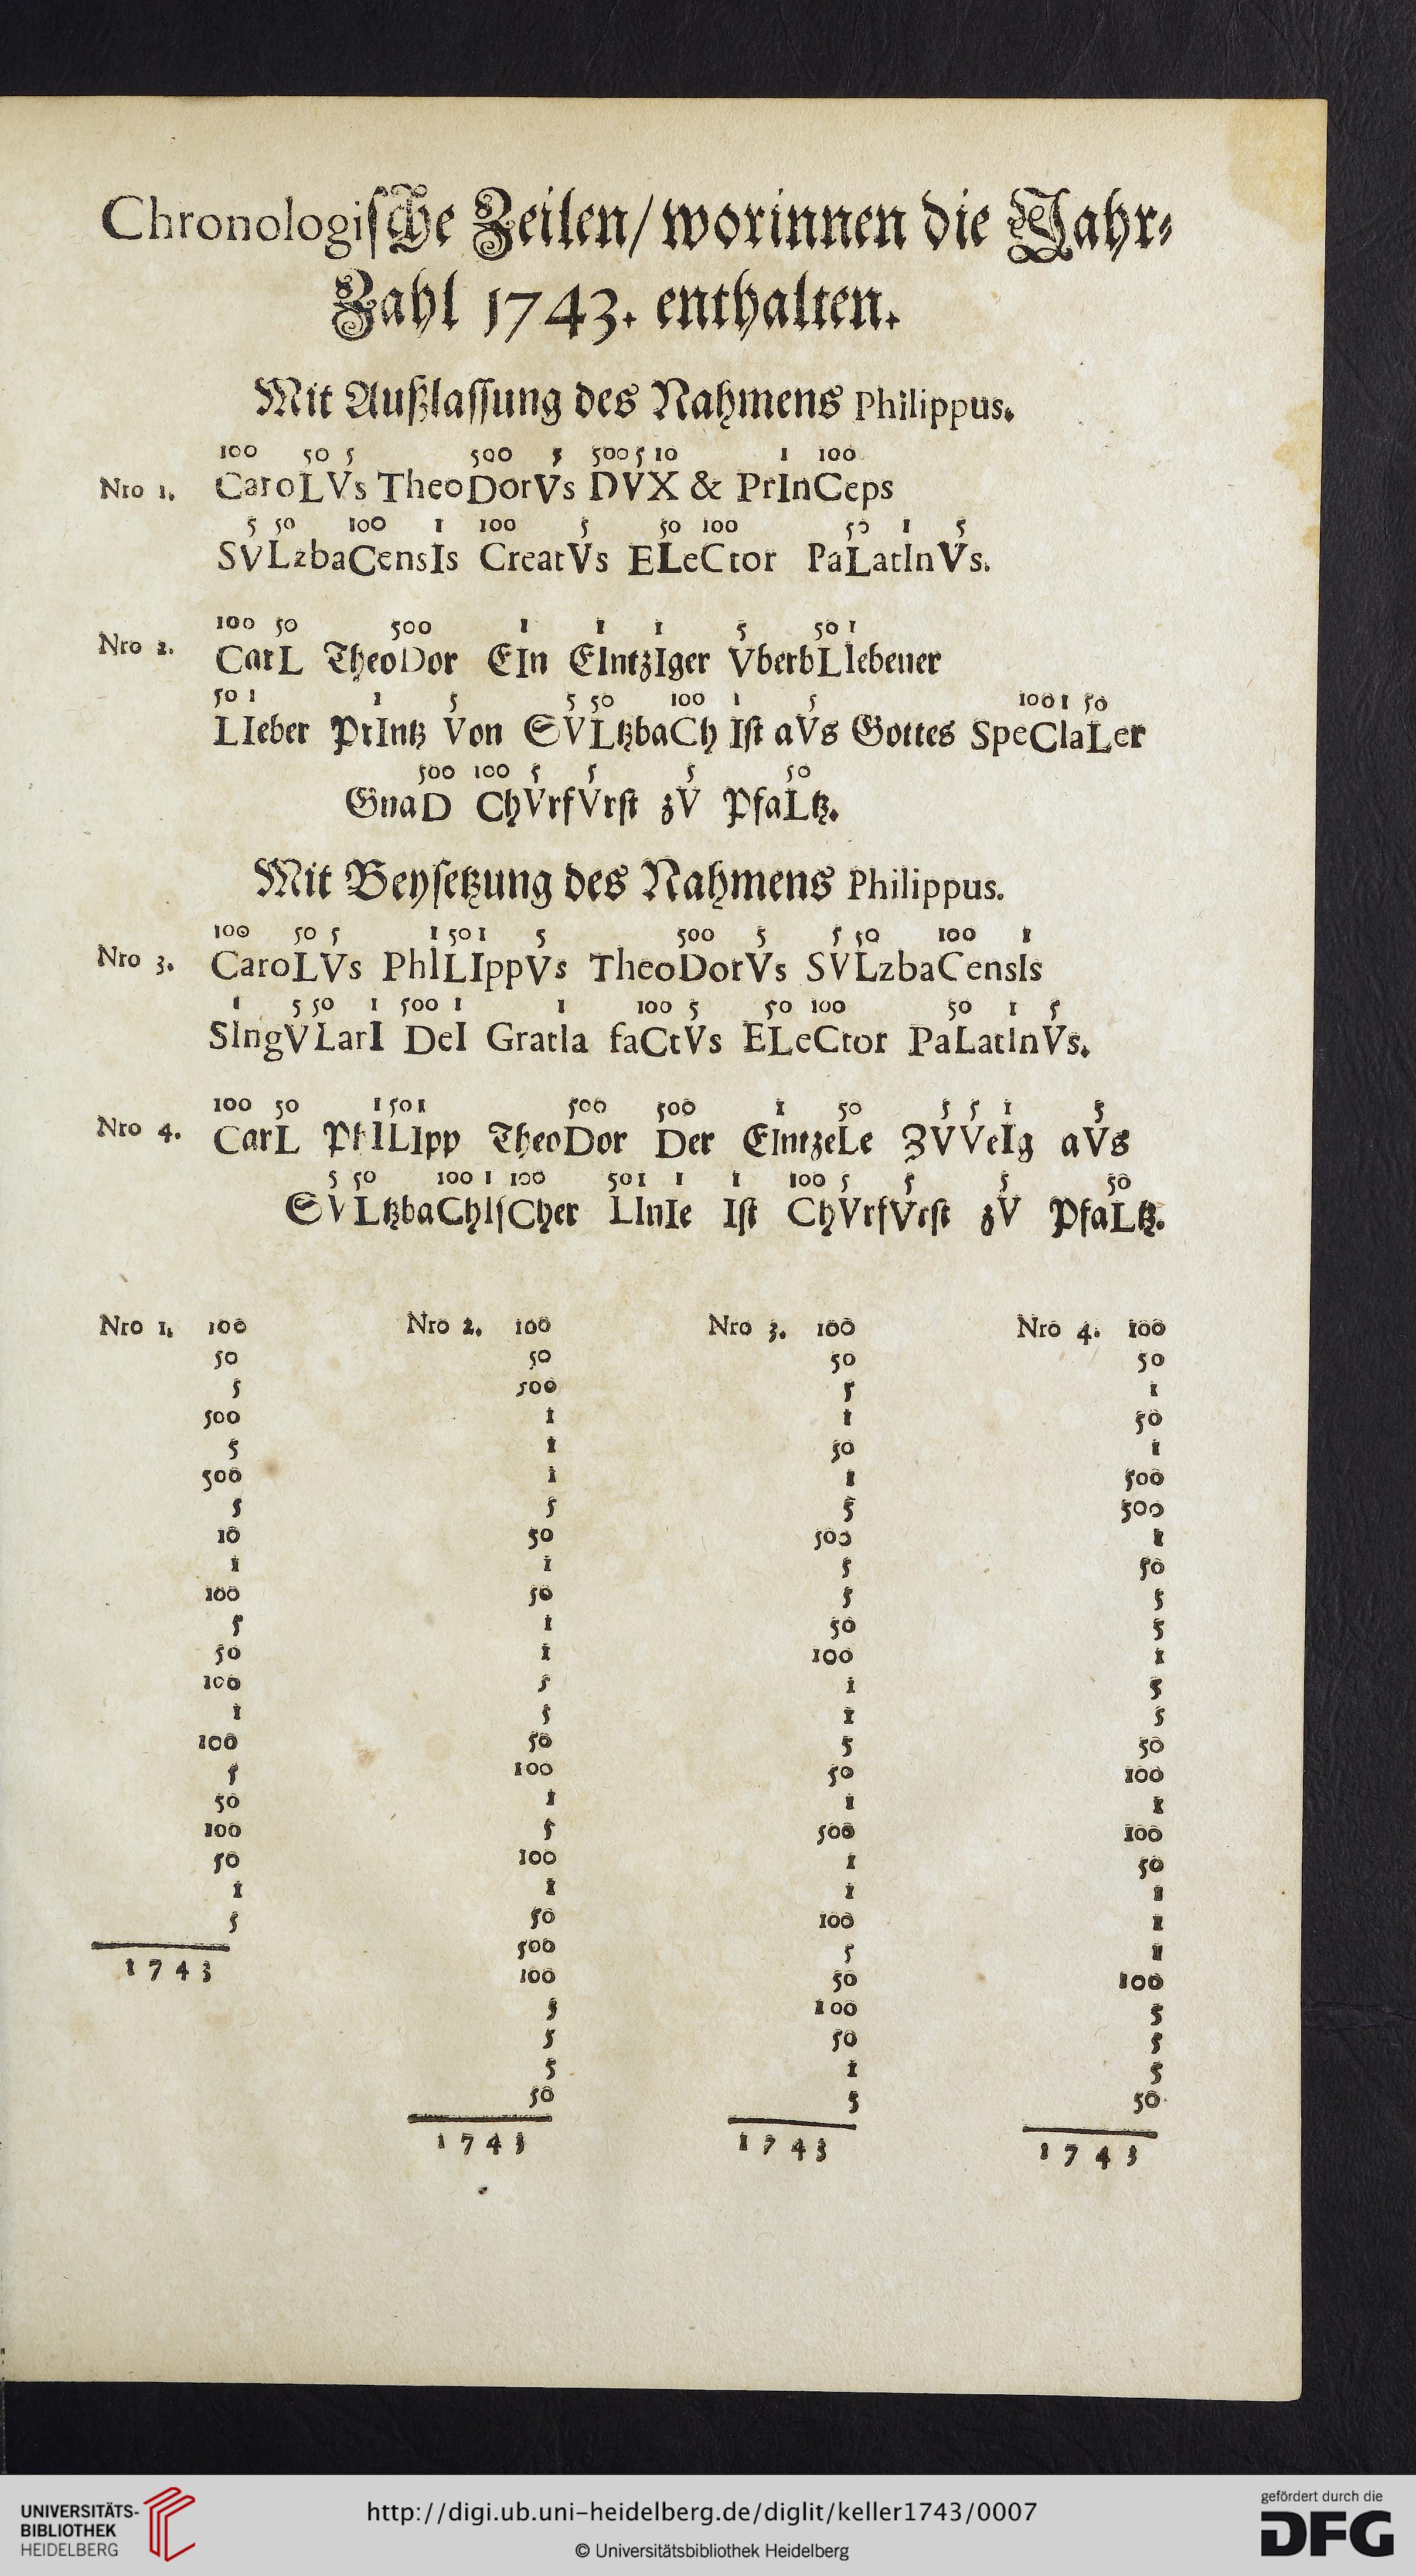 Chronologische Zeilen/ worinnen die Jahr⸗
Zahl 1743. enthalten.
Mit Außlassung des Nahmens Philippus.
100 50 5 500 5 500 5 10 1 100
Nro 1. CaroLVs TheoDorVs DVX & PrInCeps
5 50 100 1 100 5 50 100 50 1 5
SVLzbaCensIs CreatVs ELeCtor PaLatInVs.
100 50 500 1 1 1 5 50 1
Nro 2. CarL TheoDor EIn EIntzIger VberbLIebener
50 1 1 5 5 50 100 1 5 100 1 50
LIeber PrIntz Von SVLtzbaCh Ist aVs Gottes SpeCIaLer
500 100 5 5 5 50
GnaD ChVrfVrst zV PfaLtz.
Mit Beysetzung des Nahmens Philippus.
100 50 5 1 50 1 5 500 5 5 50 100 1
Nro 3. CaroLVs PhILIppVs TheoDorVs SVLzbaCensIs
1 5 50 1 500 1 1 100 5 50 100 50 1 5
SIngVLarI DeI GratIa faCtVs ELeCtor PaLatInVs.
100 50 1 50 1 500 500 1 50 5 5 1 5
Nro 4. CarL PhILIpp TheoDor Der EIntzeLe ZVVeIg aVs
5 50 100 1 100 50 1 1 1 100 5 5 5 50
SVLtzbaChIsCher LInIe Ist ChVrfVrst zV PfaLtz.
Nro 1. 100
50
5
500
5
500
5
10
1
100
5
50
100
1
100
5
50
100
50
1
5
1743
Nro 2. 100
50
500
1
1
1
5
50
1
50
1
1
5
5
50
100
1
5
100
1
50
500
100
5
5
5
50
1743
Nro 3. 100
50
5
1
50
1
5
500
5
5
50
100
1
1
5
50
1
500
1
1
100
5
50
100
50
1
5
1743
Nro 4. 100
50
1
50
1
500
500
1
50
5
5
1
5
5
50
100
1
100
50
1
1
1
100
5
5
5
50
1743
UNIVERSITÄTS-
BIBLIOTHEK
HEIDELBERG
http://digi.ub.uni-heidelberg.de/diglit/keller1743/0007
© Universitätsbibliothek Heidelberg
gefördert durch die
DFG